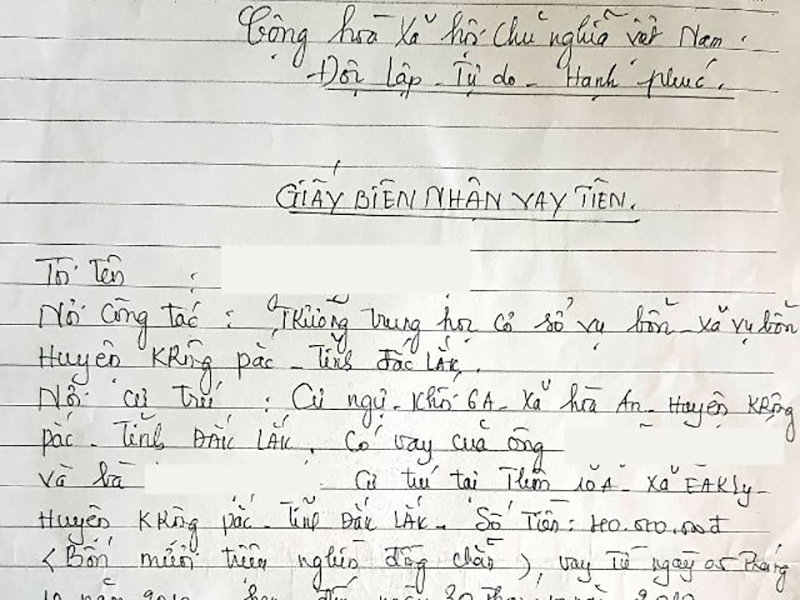 Cộng hoà Xã hội Chủ nghĩa việt Nam.
Độc lập - Tự do - Hạnh phúc.
GIẤY BIÊN NHẬN VAY TIỀN.
Tôi tên :
Nơi công tác : Trường trung học cơ sở vụ bổn - xã vụ bổn
Huyện KRông pắc - Tỉnh đắc LẮK.
Nơi cư trú : Cư ngụ - Khối 6A - Xã hòa An - Huyện KRông
pắc - Tỉnh ĐẮK LẮK. Có vay của ông
và bà Cư trú tại Thôn 10A - Xã EAKLy -
Huyện KRông pắc - Tỉnh Đắk LẮK - Số Tiền : 400.000.000đ
(Bốn mươi triệu nghìn đồng chẵn), vay Từ ngày 05 Tháng
10 năm đến ngày 30